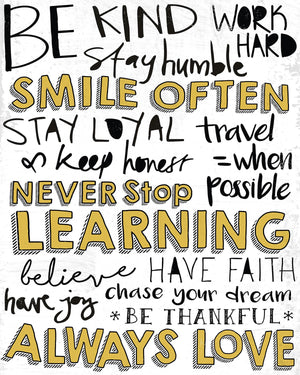 BE KIND WORK HARD
stay humble
SMILE OFTEN
STAY LOYAL travel
& keep honest =when possible
NEVER Stop
LEARNING
believe HAVE FAITH
have joy chase your dream
*BE THANKFUL*
ALWAYS LOVE